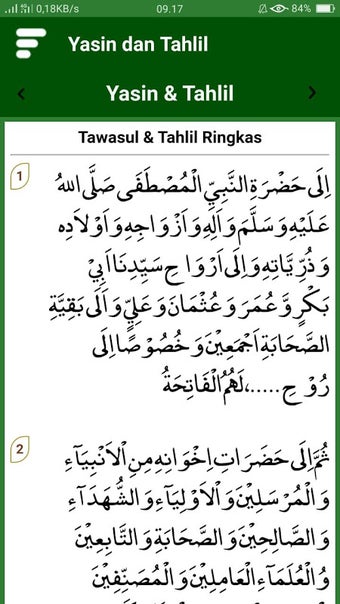 0,18KB/s 09.17 84%
Yasin dan Tahlil
Yasin & Tahlil
Tawasul & Tahlil Ringkas
1
اِلَى حَضْرَةِ النَّبِيِّ الْمُصْطَفَى صَلَّى اللهُ
عَلَيْهِ وَسَلَّمَ وَآلِهِ وَاَزْوَاجِهِ وَاَوْلَادِه
وَذُرِّيَّاتِهِ وَاِلَى اَرْوَا حِ سَيِّدِنَا اَبِيْ
بَكْرٍ وَّ عُمَرَ وَ عُثْمَانَ وَ عَلِيٍّ وَ اِلَى بَقِيَّةِ
الصَّحَابَةِ اَجْمَعِيْنَ وَ خُصُوْصًا اِلَى
رُوْ حِ .....، لَهُمُ الْفَاتِحَةُ
2
ثُمَّ اِلَى حَضَرَاتِ اِخْوَانِهِ مِنَ الْاَنْبِيَآءِ
وَ الْمُرْسَلِيْنَ وَ الْاَوْلِيَآءِ وَ الشُّهَدَآءِ
وَ الصَّالِحِيْنَ وَ الصَّحَابَةِ وَ التَّابِعِيْنَ
وَ الْعُلَمَآءِ الْعَامِلِيْنَ وَ الْمُصَنِّفِيْنَ